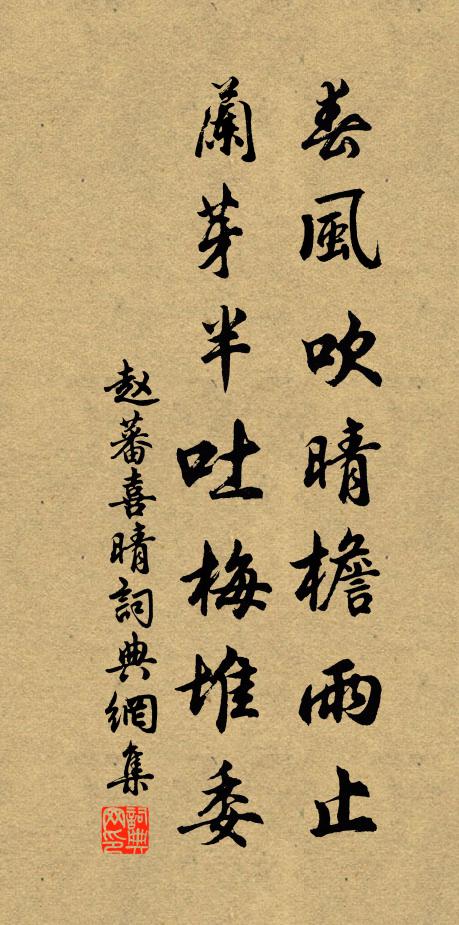 春風吹晴檐雨止
蘭芽半吐梅堆委
赵蕃喜晴詞典網集
詞典網印